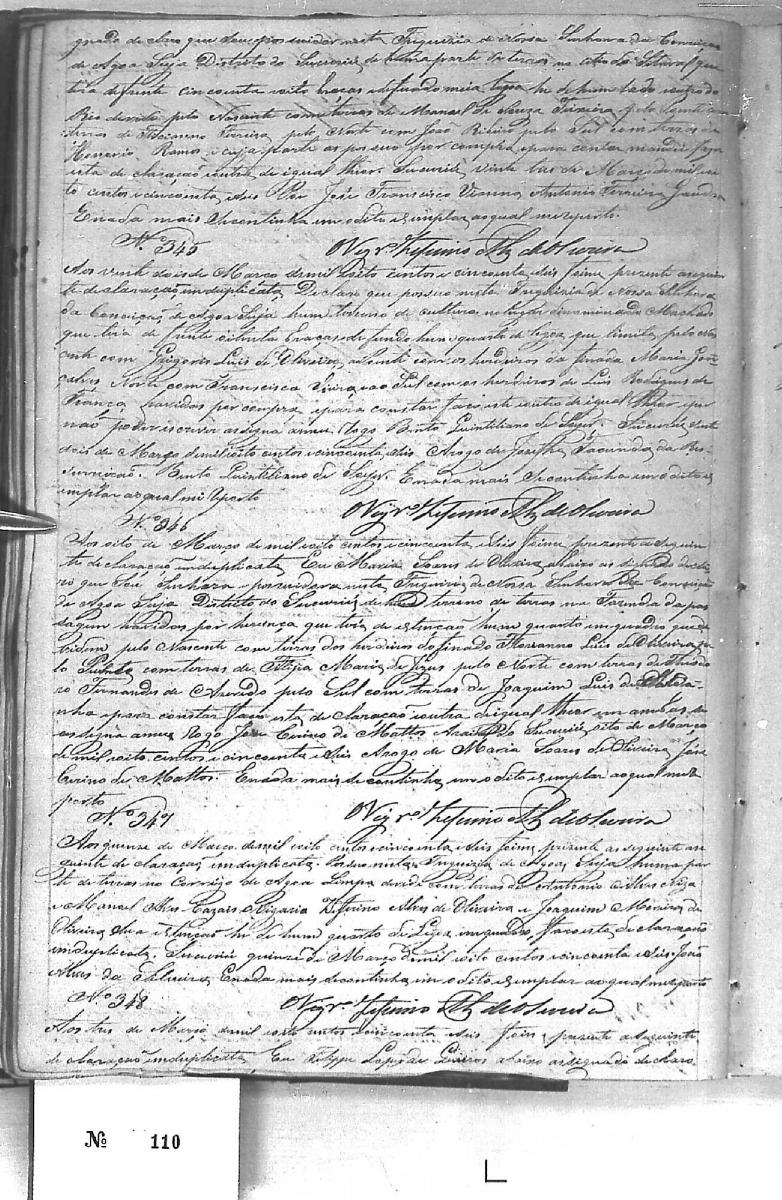 gnado declaro que sou possuidor nesta Freguezia de Nossa Senhora da Conceição
de Agoa Suja Districto do Sucuriú de huma parte de terras no citio do
tera de frente cincoenta e oito braças e de fundo meia legoa he de hum lado
Rio devide pelo Nascente com as terras de Manoel de Souza Teixeira
terras de Floriano Pereira pelo Norte com João Ribeiro pelo Sul com terras de
Honorio Ramos, cuja parte as possuo por compra e para constar mandei fazer
esta declaração e outra de igual theor. Sucuriú vinte tres de Março de mil oi
to centos e cincoenta e seis Por José Francisco Vianna Antonio Ferreira
E nada mais se continha em o dito exemplar ao qual me reporto.
No 345 O Vigr.o Zeferino Alz de Oliveira
Aos vinte dois de Março de mil e oito centos e cincoenta e seis foime prezente a seguin
te declaração em duplicata, Declaro que possuo nesta Freguezia de Nossa Senhora
da Conceição de Agoa Suja hum terreno de cultura no lugar denominado Machado
que terá de frente oitenta braças e de fundo hum quarto de legoa, que limita pelo nas
cente com Gregorio Luis de Oliveira, ao Poente com os herdeiros da finada Maria Gon
calves Norte com Francisco ao Sul com os herdeiros de Luis Rodrigues de
França, havidos por compra, e para constar faço este e outro de igual theor e por
não poder escrever assigna a meu rogo Bento Quintiliano de Sucuriú vinte
dois de Março de mil e oito centos e cincoenta e seis Arogo de Josepha Facunda da Res
surreicão. Bento Quintiliano de E nada mais se continha em o dito ex
emplar ao qual me reporto
No 346 O Vigr.o Zeferino Alz de Oliveira
Aos oito de Março de mil e oito centos e cincoenta e seis foime prezente a seguin
te declaração em duplicata, Eu Maria Soares de Oliveira abaixo assignado decla
ro que sou Senhora e possuidora nesta Freguezia de Nossa Senhora da Conceição
de Agoa Suja Districto do Sucuriú de hum terreno de terras na Fazenda da pas
sagem havidos por herença que terá de estenção hum quarto em quadro que de
videm pelo Nascente com terras dos herdeiros do finado Floriano Luis de Oliveira, pe
lo Poente com terras de Maria de Jezus pelo Norte com terras de Theodo
ro Fernandes de Azevedo pelo Sul com terras de Joaquim Luis de
nha e para constar faço esta declaração e outra de igual theor em ambas
assigna a meu Rogo José Cirino de Mattos Arraial do Sucuriú oito de Março
de mil e oito centos e cincoenta e seis Arogo de Maria Soares de Oliveira José
Cirino de Mattos. E nada mais se continha em o dito exemplar ao qual me re
porto
No 347 O Vigr.o Zeferino Alz de Oliveira
Aos quinze de Março de mil e oito centos e cincoenta e seis foime prezente a seguinte
declaração em duplicata. Possuo nesta Freguezia de Agoa Suja huma par
te de terras no Corrego de Agoa Limpa devide com terras de Antonio Alves
e Manoel Alves Zeferino Alves de Oliveira e Joaquim Moreira de
Oliveira, Sua estenção he de hum quarto de Legoa em quadro, Faço esta declaração
em duplicata. Sucuriú quinze de Março de mil e oito centos e cincoenta e seis João
Alves da Silveira, E nada mais se continha em o dito exemplar ao qual me reporto
No 348 O Vigr.o Zeferino Alz de Oliveira
Aos tres de Março de mil e oito centos e cincoenta e seis foime prezente a seguinte
declaração em duplicata, Eu Felippe Lopes de abaixo assignado declaro
No 110